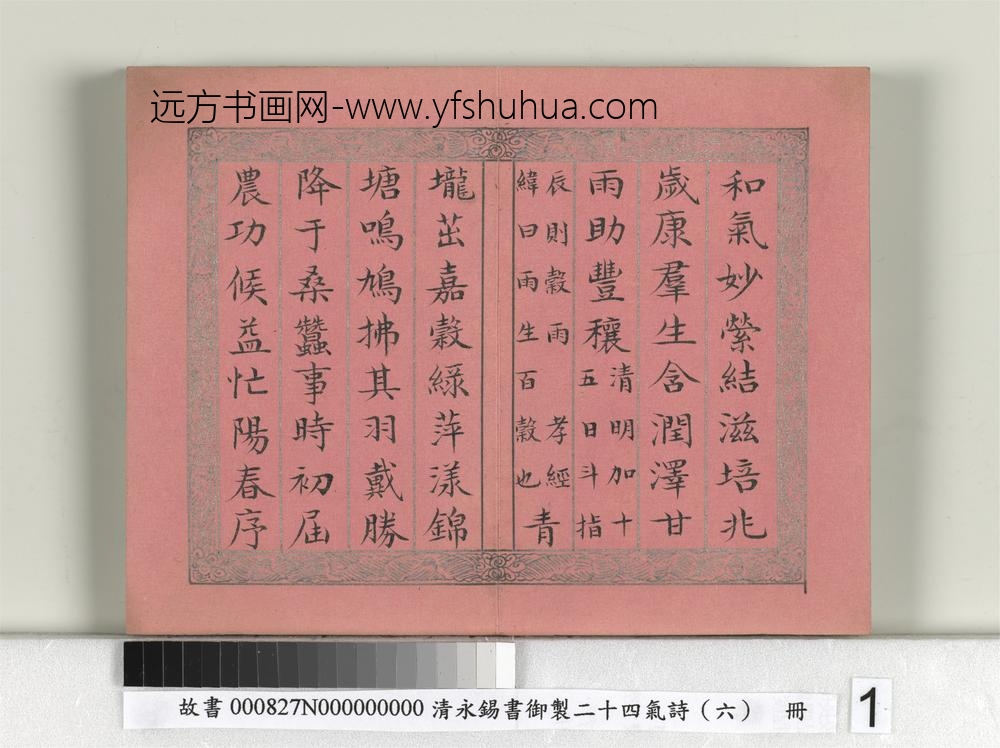 远方书画网-www.yfshuhua.com
和氣妙縈結滋培兆
歲康羣生含潤澤甘
雨助豐穰清明加十五日斗指
辰則穀雨孝經緯曰雨生百穀也青
壠茁嘉穀綠萍漾錦
塘鳴鳩拂其羽戴勝
降于桑蠶事時初屆
農功候益忙陽春序
故書 000827N000000000 清永錫書御製二十四氣詩（六） 冊
1